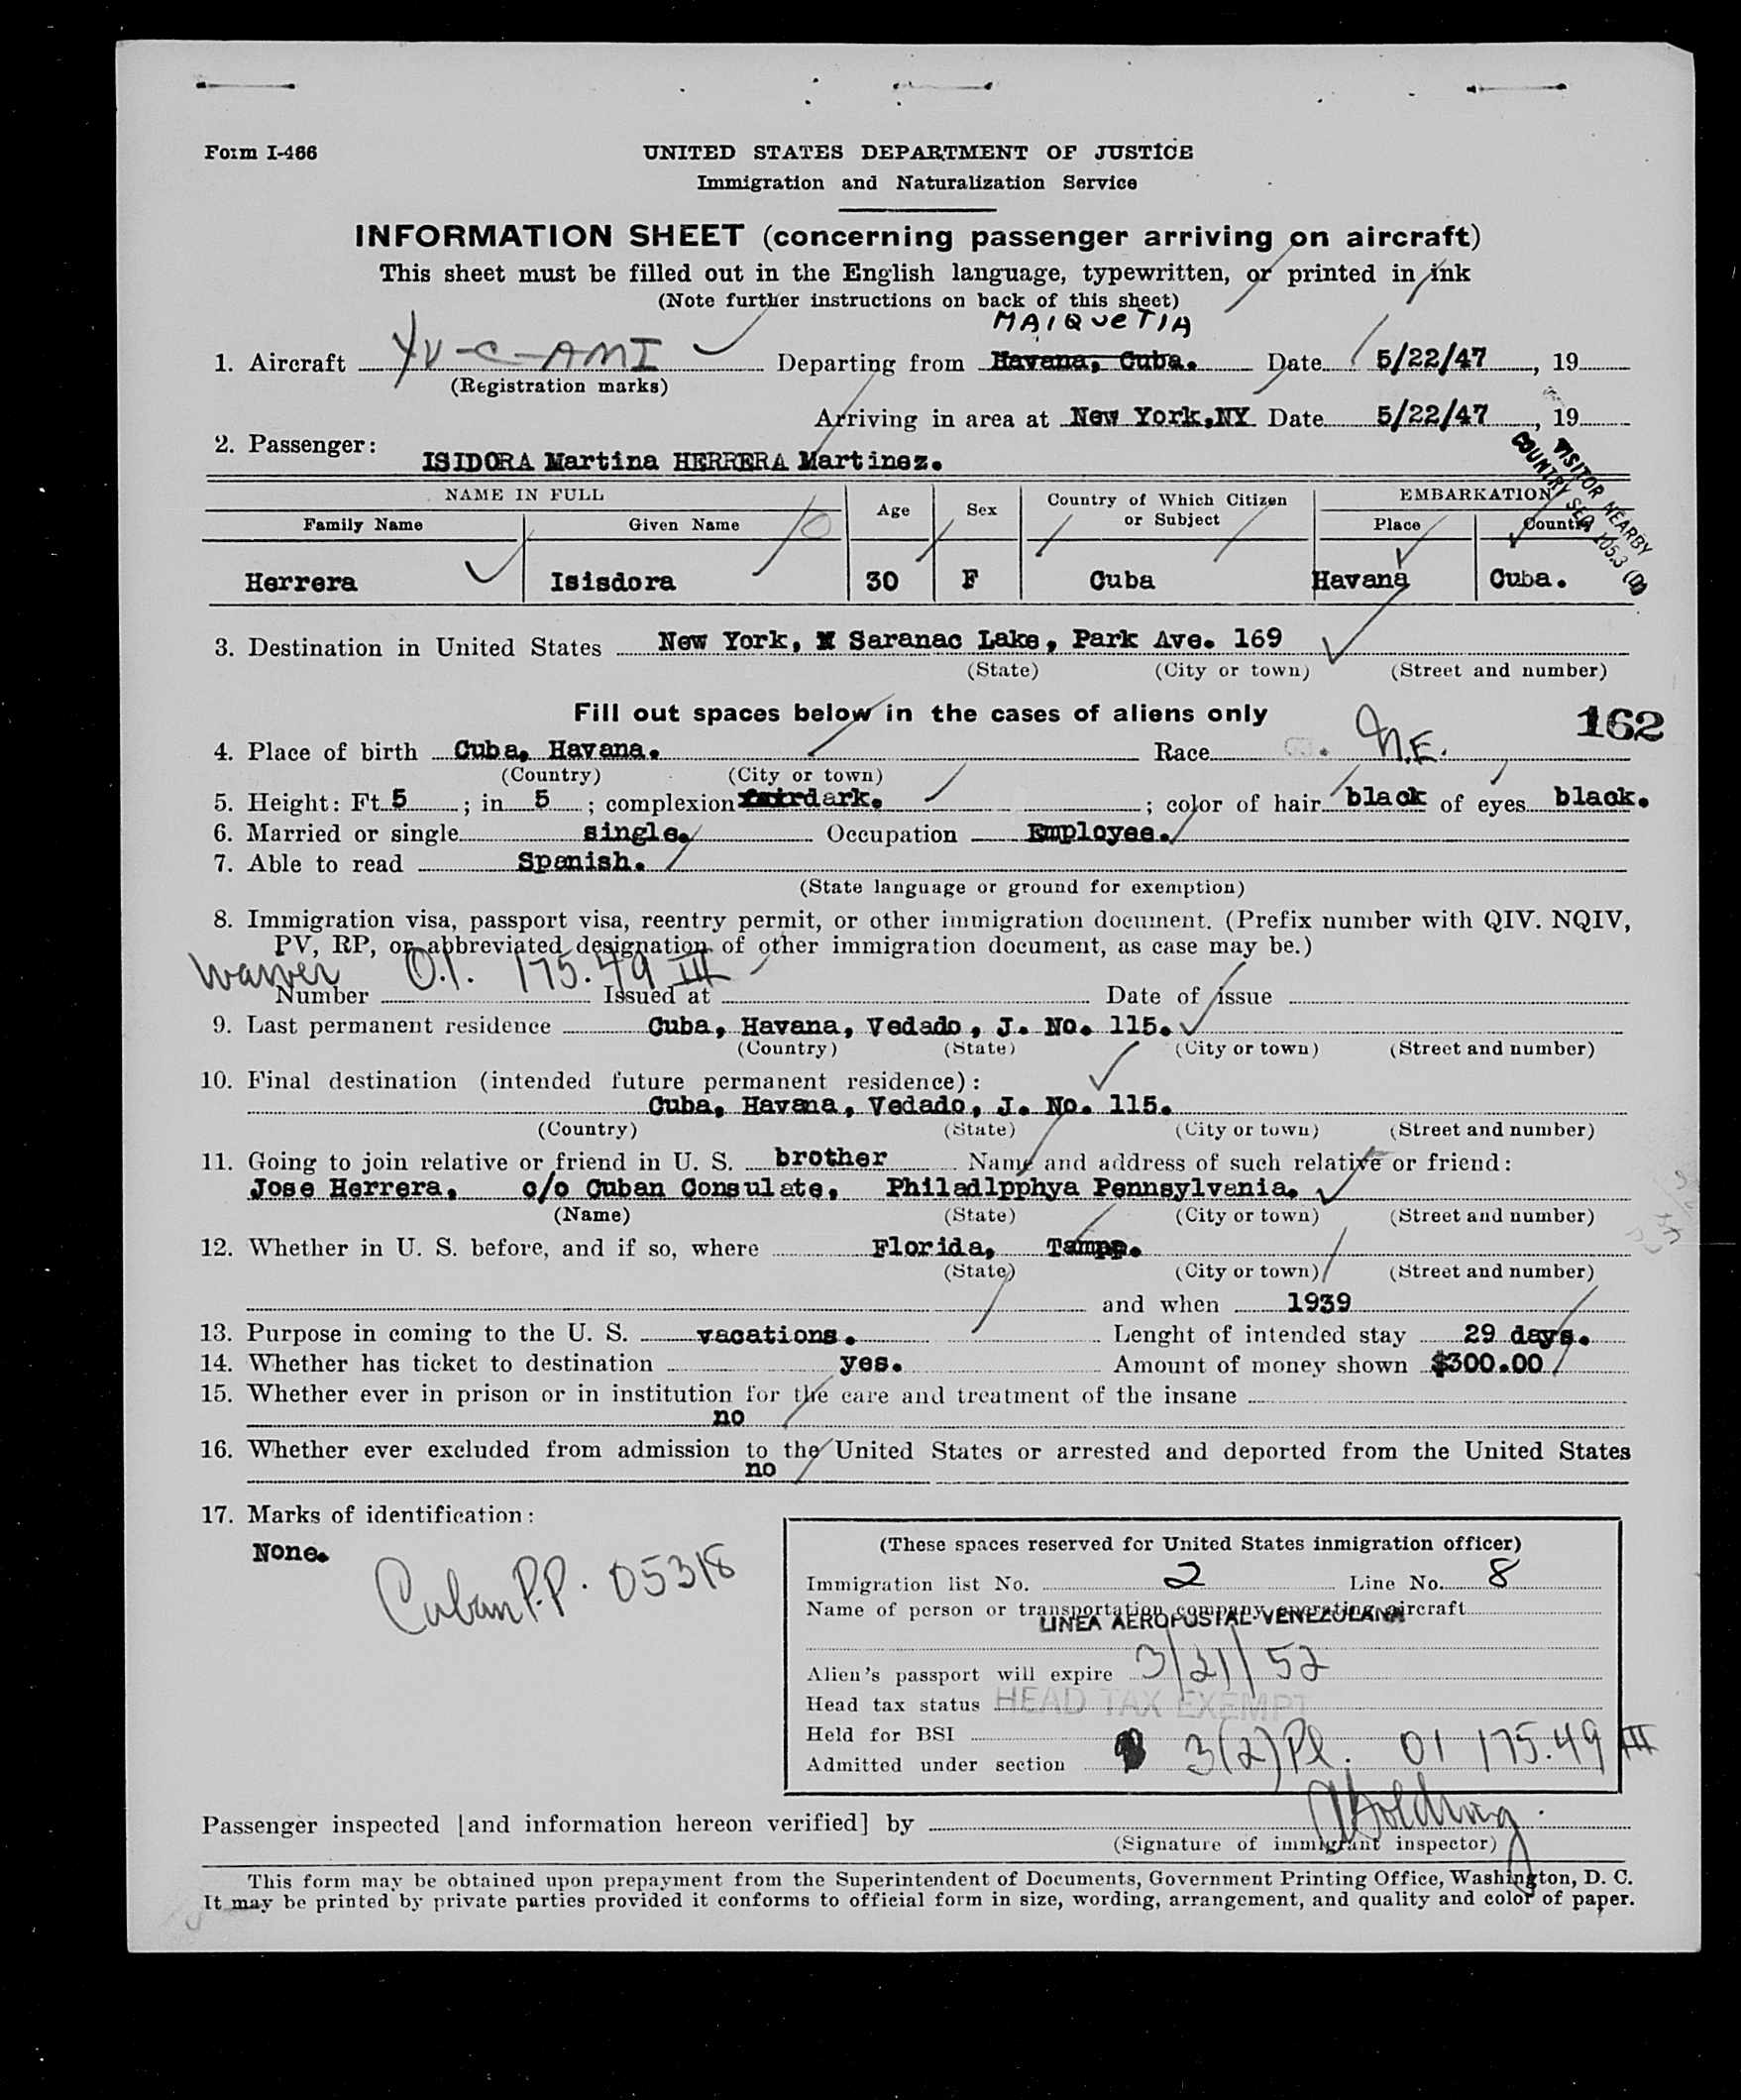 Form I-466
UNITED STATES DEPARTMENT OF JUSTICE
Immigration and Naturalization Service
INFORMATION SHEET (concerning passenger arriving on aircraft)
This sheet must be filled out in the English language, typewritten, or printed in ink
(Note further instructions on back of this sheet)
MAIQUeTIA
1. Aircraft YV-C-AMI Departing from Havana, Cuba. Date 5/22/47, 19
(Registration marks)
Arriving in area at New York,NY Date 5/22/47, 19
2. Passenger: ISIDORA Martina HERRERA Martinez.
VISITOR NEARBY
COUNTRY SEQ 105.3 (D)
NAME IN FULL Age Sex Country of Which Citizen or Subject EMBARKATION
Family Name Given Name Place Country
Herrera Isisdora 30 F Cuba Havana Cuba.
3. Destination in United States New York, Saranac Lake, Park Ave. 169
(State) (City or town) (Street and number)
Fill out spaces below in the cases of aliens only
162
4. Place of birth Cuba, Havana. Race N.E.
(Country) (City or town)
5. Height: Ft 5 ; in 5 ; complexion fair dark. ; color of hair black of eyes black.
6. Married or single single. Occupation Employee.
7. Able to read Spanish.
(State language or ground for exemption)
8. Immigration visa, passport visa, reentry permit, or other immigration document. (Prefix number with QIV. NQIV,
PV, RP, or abbreviated designation of other immigration document, as case may be.)
Waiver O.I. 175.49 III
Number Issued at Date of issue
9. Last permanent residence Cuba, Havana, Vedado, J. No. 115.
(Country) (State) (City or town) (Street and number)
10. Final destination (intended future permanent residence):
Cuba, Havana, Vedado, J. No. 115.
(Country) (State) (City or town) (Street and number)
11. Going to join relative or friend in U. S. brother Name and address of such relative or friend:
Jose Herrera, c/o Cuban Consulate, Philadlpphya Pennsylvania.
(Name) (State) (City or town) (Street and number)
12. Whether in U. S. before, and if so, where Florida, Tampa.
(State) (City or town) (Street and number)
and when 1939
13. Purpose in coming to the U. S. vacations. Lenght of intended stay 29 days.
14. Whether has ticket to destination yes. Amount of money shown $300.00
15. Whether ever in prison or in institution for the care and treatment of the insane
no
16. Whether ever excluded from admission to the United States or arrested and deported from the United States
no
17. Marks of identification:
None.
Cuban P.P. 05318
(These spaces reserved for United States inmigration officer)
Immigration list No. 2 Line No. 8
Name of person or transportation company operating aircraft
LINEA AEROPOSTAL VENEZOLANA
Alien's passport will expire 3/21/52
Head tax status HEAD TAX EXEMPT
Held for BSI
Admitted under section 3(2) Pl. OI 175.49 III
Passenger inspected [and information hereon verified] by
(Signature of immigrant inspector)
This form may be obtained upon prepayment from the Superintendent of Documents, Government Printing Office, Washington, D. C.
It may be printed by private parties provided it conforms to official form in size, wording, arrangement, and quality and color of paper.